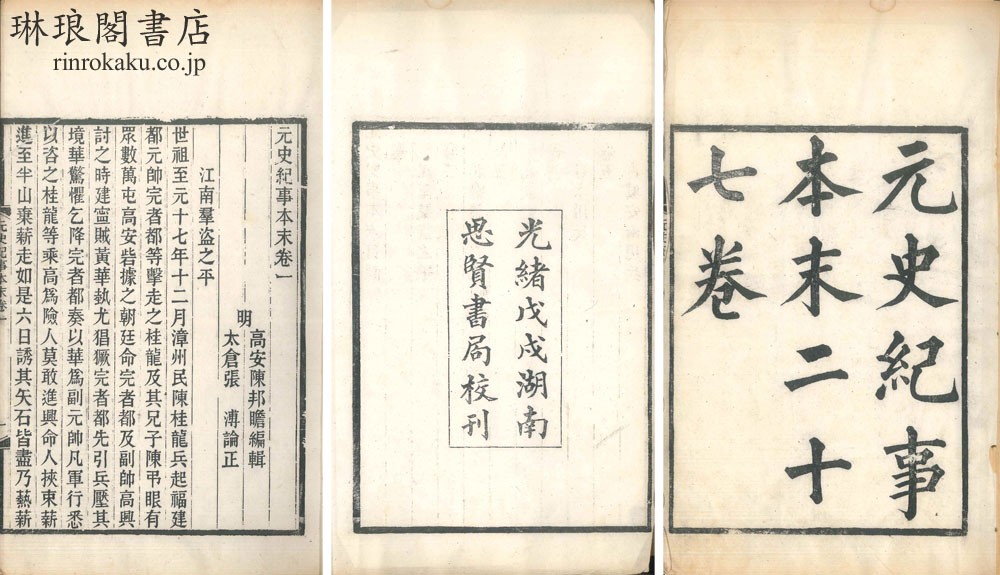 琳琅閣書店
rinrokaku.co.jp
元史紀事
本末二十
七卷
光緒戊戌湖南
思賢書局校刊
元史紀事本末卷一
明
高安陳邦瞻編輯
太倉張　溥論正
江南羣盜之平
世祖至元十七年十二月漳州民陳桂龍兵起福建
都元帥完者都等擊走之桂龍及其兄子陳弔眼有
眾數萬屯高安砦據之朝廷命完者都及副帥高興
討之時建寧賊黃華執尤猖獗完者都先引兵壓其
境華驚懼乞降完者都奏以華為副元帥凡軍行悉
以咨之桂龍等乘高為險人莫敢進興命人挾束薪
進至半山棄薪走如是六日誘其矢石皆盡乃爇薪
元史紀事本末卷一